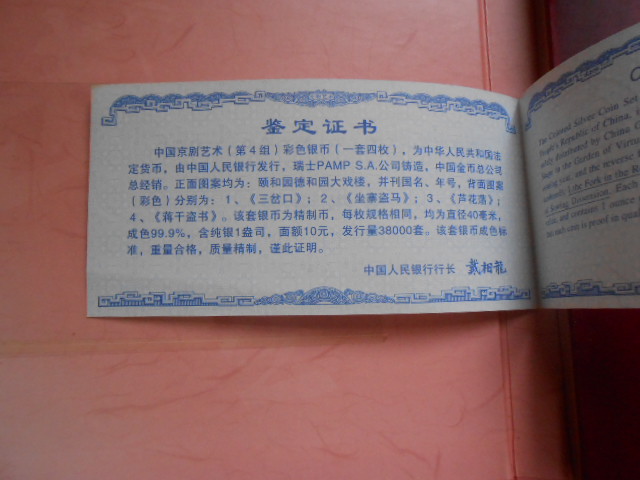 鉴定证书
中国京剧艺术（第4组）彩色银币（一套四枚），为中华人民共和国法
定货币，由中国人民银行发行，瑞士PAMP S.A.公司铸造，中国金币总公司
总经销。正面图案均为：颐和园德和园大戏楼，并刊国名、年号，背面图案
（彩色）分别为：1、《三岔口》；2、《坐寨盗马》；3、《芦花荡》；
4、《蒋干盗书》。该套银币为精制币，每枚规格相同，均为直径40毫米，
成色99.9%，含纯银1盎司，面额10元，发行量38000套。该套银币成色标
准，重量合格，质量精制，谨此证明。
中国人民银行行长 戴相龙
The Colored Silver Coin Set
People's Republic of China,
only distributed by China
stage in the Garden of Virtu
issuing year, and the reverse
Fork in the
Each
contains 1 ounce
coin is proof in quali